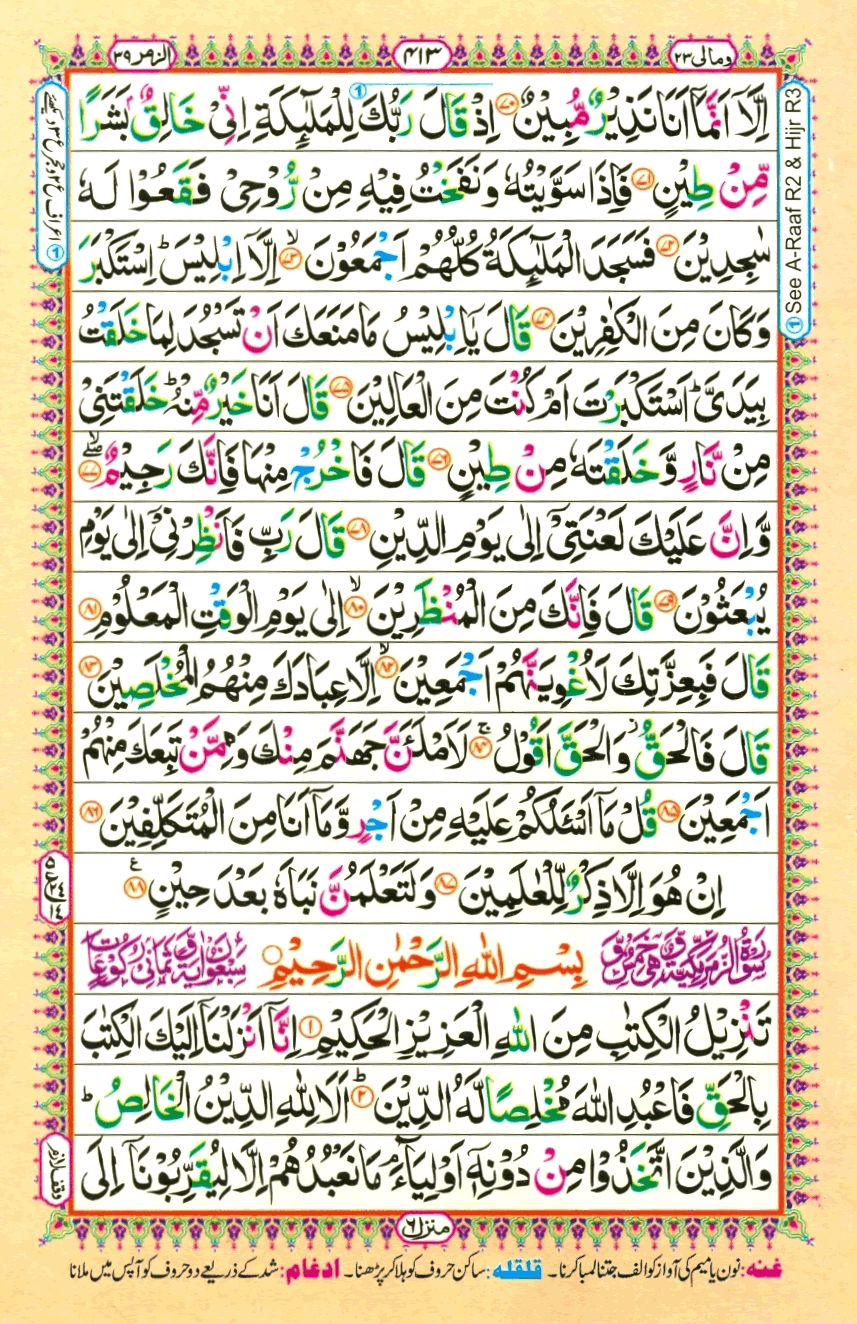 ومالی ۲۳
۴۱۳
الزمر ۳۹
اِلَّاۤ اَنَّمَاۤ اَنَا نَذِیْرٌ مُّبِیْنٌ ۝۷۰ اِذْ قَالَ رَبُّكَ لِلْمَلٰٓىِٕكَةِ اِنِّیْ خَالِقٌۢ بَشَرًا
مِّنْ طِیْنٍ ۝۷۱ فَاِذَا سَوَّیْتُهٗ وَ نَفَخْتُ فِیْهِ مِنْ رُّوْحِیْ فَقَعُوْا لَهٗ
سٰجِدِیْنَ ۝۷۲ فَسَجَدَ الْمَلٰٓىِٕكَةُ كُلُّهُمْ اَجْمَعُوْنَ ۙ۝۷۳ اِلَّاۤ اِبْلِیْسَ ؕ اِسْتَكْبَرَ
وَ كَانَ مِنَ الْكٰفِرِیْنَ ۝۷۴ قَالَ یٰۤاِبْلِیْسُ مَا مَنَعَكَ اَنْ تَسْجُدَ لِمَا خَلَقْتُ
بِیَدَیَّ ؕ اَسْتَكْبَرْتَ اَمْ كُنْتَ مِنَ الْعَالِیْنَ ۝۷۵ قَالَ اَنَا خَیْرٌ مِّنْهُ ؕ خَلَقْتَنِیْ
مِنْ نَّارٍ وَّ خَلَقْتَهٗ مِنْ طِیْنٍ ۝۷۶ قَالَ فَاخْرُجْ مِنْهَا فَاِنَّكَ رَجِیْمٌ ۚۖ۝۷۷
وَّ اِنَّ عَلَیْكَ لَعْنَتِیْۤ اِلٰی یَوْمِ الدِّیْنِ ۝۷۸ قَالَ رَبِّ فَاَنْظِرْنِیْۤ اِلٰی یَوْمِ
یُبْعَثُوْنَ ۝۷۹ قَالَ فَاِنَّكَ مِنَ الْمُنْظَرِیْنَ ۙ۝۸۰ اِلٰی یَوْمِ الْوَقْتِ الْمَعْلُوْمِ ۝۸۱
قَالَ فَبِعِزَّتِكَ لَاُغْوِیَنَّهُمْ اَجْمَعِیْنَ ۙ۝۸۲ اِلَّا عِبَادَكَ مِنْهُمُ الْمُخْلَصِیْنَ ۝۸۳
قَالَ فَالْحَقُّ ؗ وَ الْحَقَّ اَقُوْلُ ۚ۝۸۴ لَاَمْلَـَٔنَّ جَهَنَّمَ مِنْكَ وَ مِمَّنْ تَبِعَكَ مِنْهُمْ
اَجْمَعِیْنَ ۝۸۵ قُلْ مَاۤ اَسْـَٔلُكُمْ عَلَیْهِ مِنْ اَجْرٍ وَّ مَاۤ اَنَا مِنَ الْمُتَكَلِّفِیْنَ ۝۸۶
اِنْ هُوَ اِلَّا ذِكْرٌ لِّلْعٰلَمِیْنَ ۝۸۷ وَ لَتَعْلَمُنَّ نَبَاَهٗ بَعْدَ حِیْنٍ ۝۸۸
سُوْرَةُ الزُّمَرِ مَكِّیَّةٌ وَّهِیَ خَمْسٌ وَّ بِسْمِ اللّٰهِ الرَّحْمٰنِ الرَّحِیْمِ سَبْعُوْنَ اٰیَةً وَّثَمَانِیْ رُكُوْعَاتٍ
تَنْزِیْلُ الْكِتٰبِ مِنَ اللّٰهِ الْعَزِیْزِ الْحَكِیْمِ ۝۱ اِنَّاۤ اَنْزَلْنَاۤ اِلَیْكَ الْكِتٰبَ
بِالْحَقِّ فَاعْبُدِ اللّٰهَ مُخْلِصًا لَّهُ الدِّیْنَ ؕ۝۲ اَلَا لِلّٰهِ الدِّیْنُ الْخَالِصُ ؕ
وَ الَّذِیْنَ اتَّخَذُوْا مِنْ دُوْنِهٖۤ اَوْلِیَآءَ ۘ مَا نَعْبُدُهُمْ اِلَّا لِیُقَرِّبُوْنَاۤ اِلَی
① See A-Raaf R2 & Hijr R3
منزل ۶
غنه: نون یا میم کی آواز کو الف جتنا لمبا کرنا۔ قلقله: ساکن حروف کو ہلا کر پڑھنا۔ ادغام: شد کے ذریعے دو حروف کو آپس میں ملانا